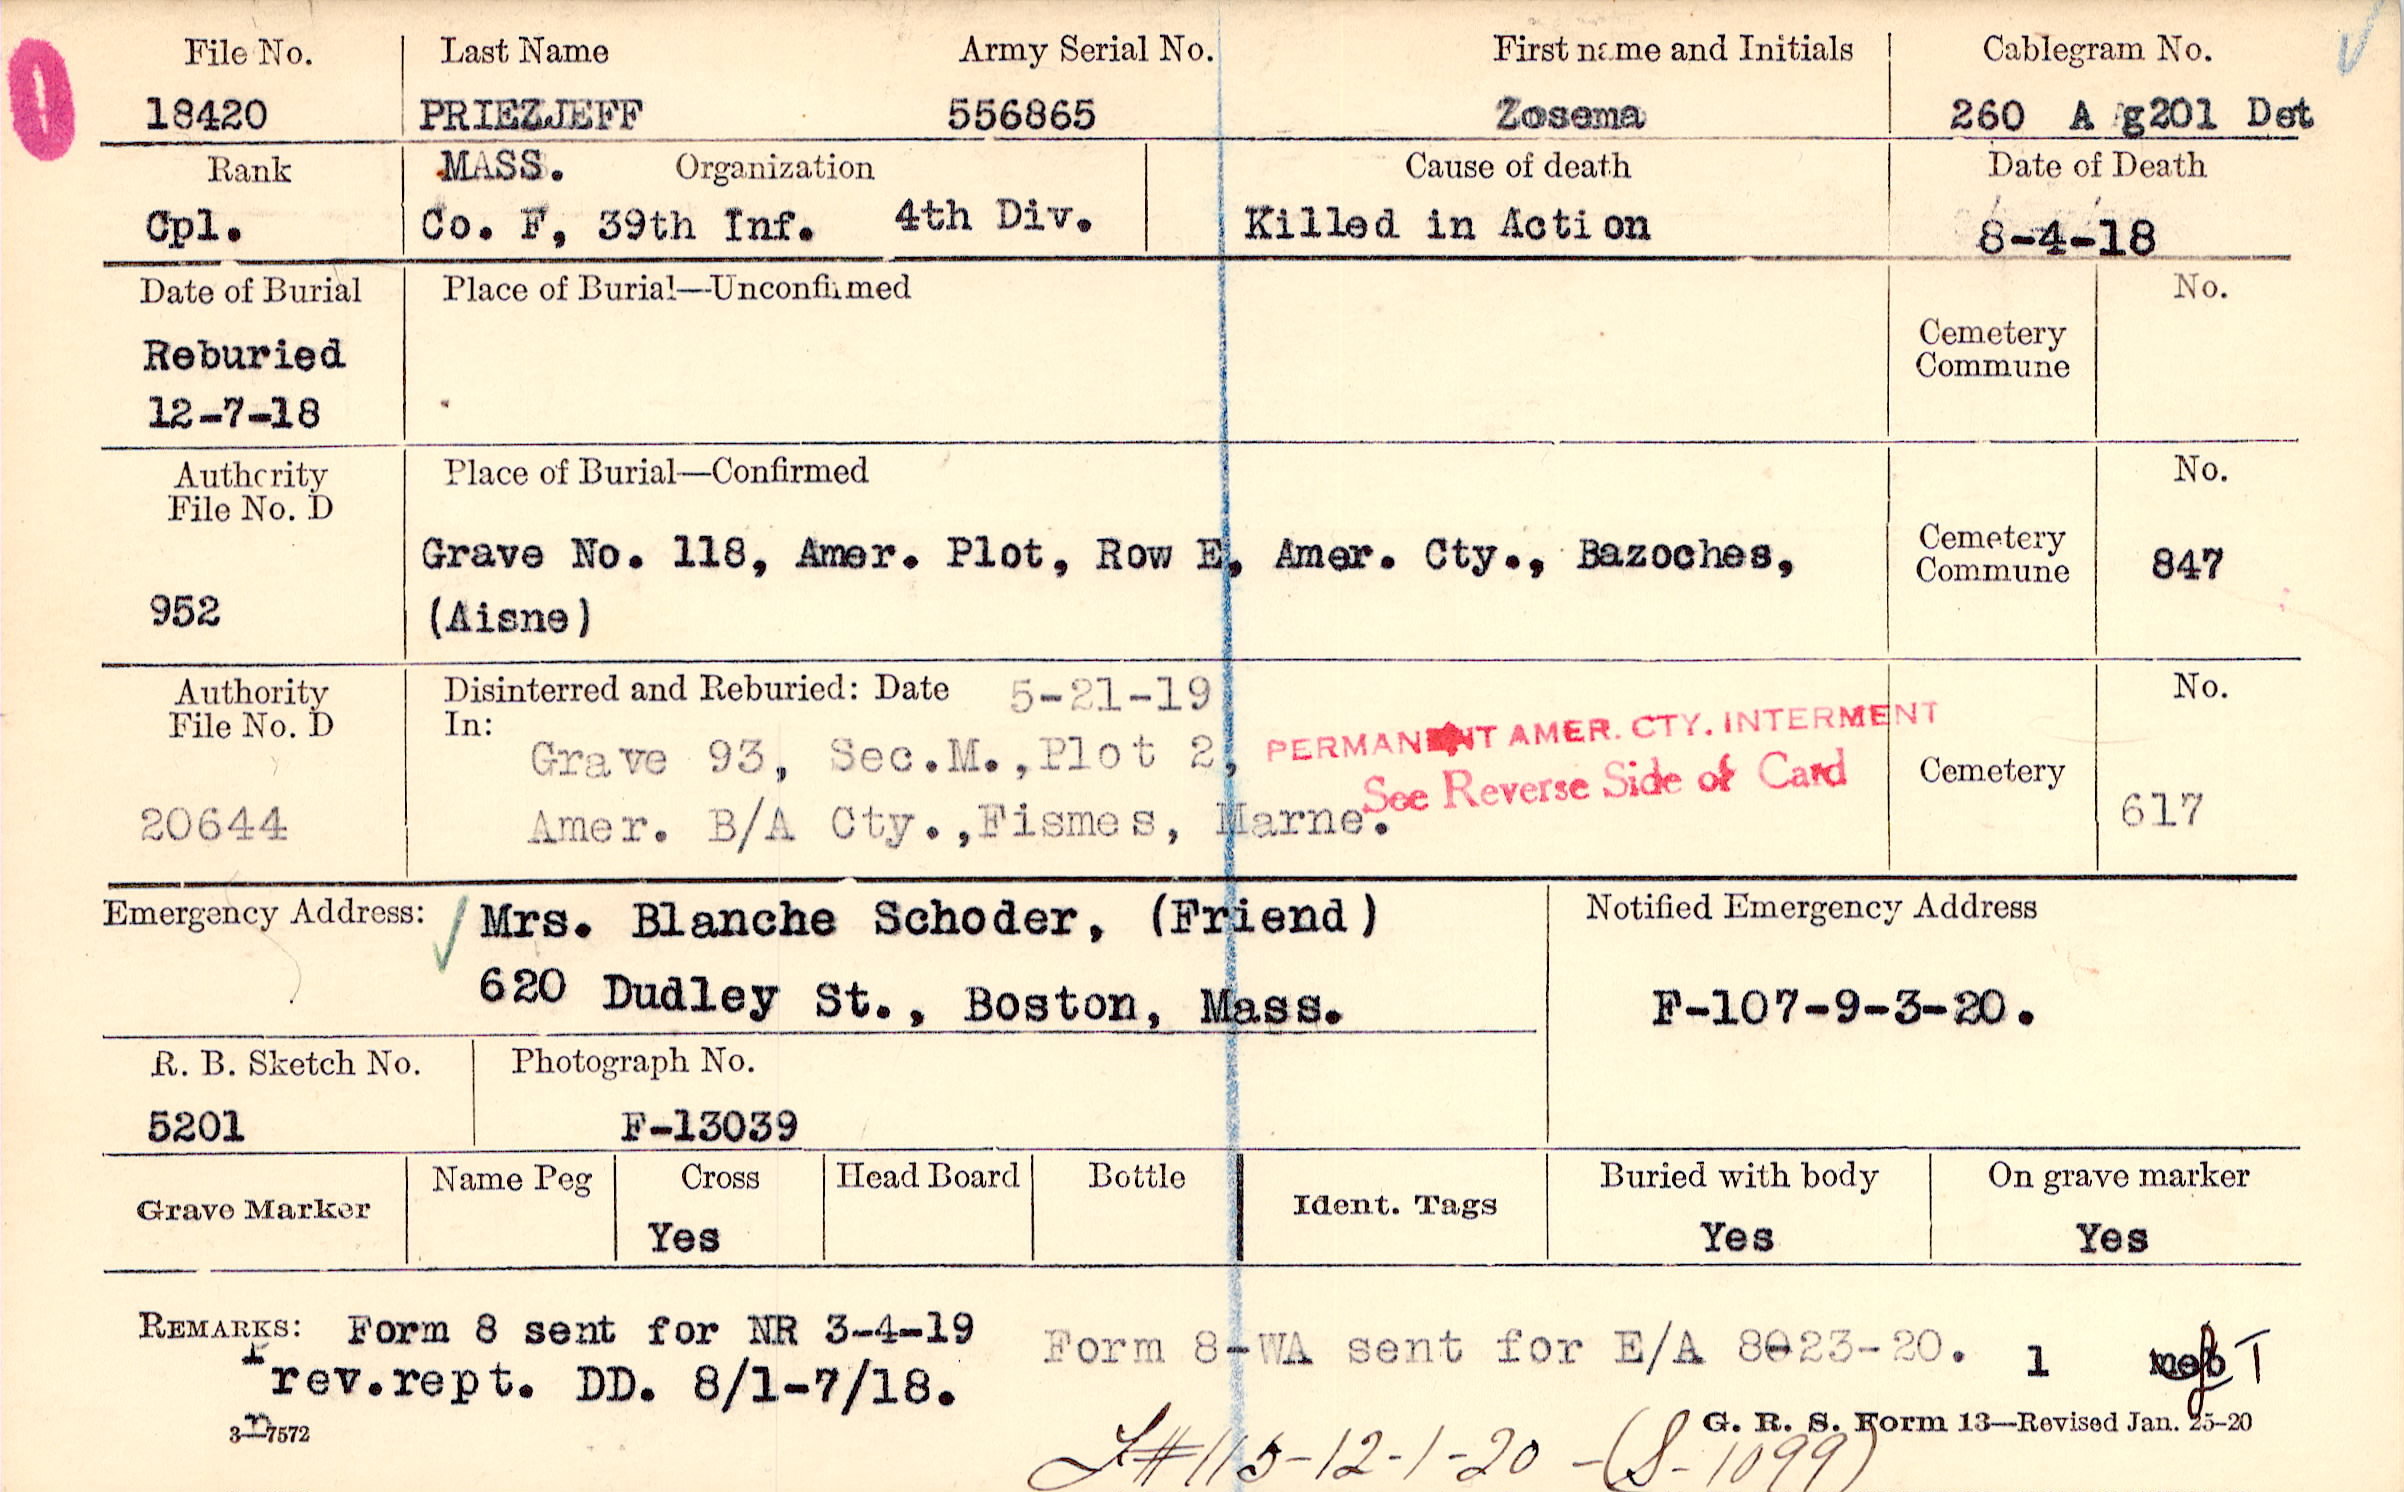 File No. Last Name Army Serial No. First name and Initials Cablegram No.
18420 PRIEZJEFF 556865 Zosema 260 A g201 Det
Rank MASS. Organization Cause of death Date of Death
Cpl. Co. F, 39th Inf. 4th Div. Killed in Action 8-4-18
Date of Burial Place of Burial—Unconfirmed No.
Reburied
12-7-18
Cemetery
Commune
Authority
File No. D
Place of Burial—Confirmed No.
952
Grave No. 118, Amer. Plot, Row E, Amer. Cty., Bazoches,
(Aisne)
Cemetery
Commune
847
Authority
File No. D
Disinterred and Reburied: Date 5-21-19 No.
In:
20644
Grave 93, Sec.M.,Plot 2,
Amer. B/A Cty.,Fismes, Marne.
PERMANENT AMER. CTY. INTERMENT
See Reverse Side of Card
Cemetery
617
Emergency Address: Mrs. Blanche Schoder, (Friend)
620 Dudley St., Boston, Mass.
Notified Emergency Address
F-107-9-3-20.
R. B. Sketch No. Photograph No.
5201 F-13039
Grave Marker Name Peg Cross Head Board Bottle Ident. Tags Buried with body On grave marker
Yes Yes Yes
REMARKS: Form 8 sent for NR 3-4-19 Form 8-WA sent for E/A 8-23-20. 1 T
Prev.rept. DD. 8/1-7/18.
3—7572
G. R. S. Form 13—Revised Jan. 25-20
#115-12-1-20 -(S-1099)